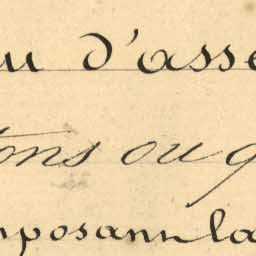 u d'asse
tons ou q
mposann la